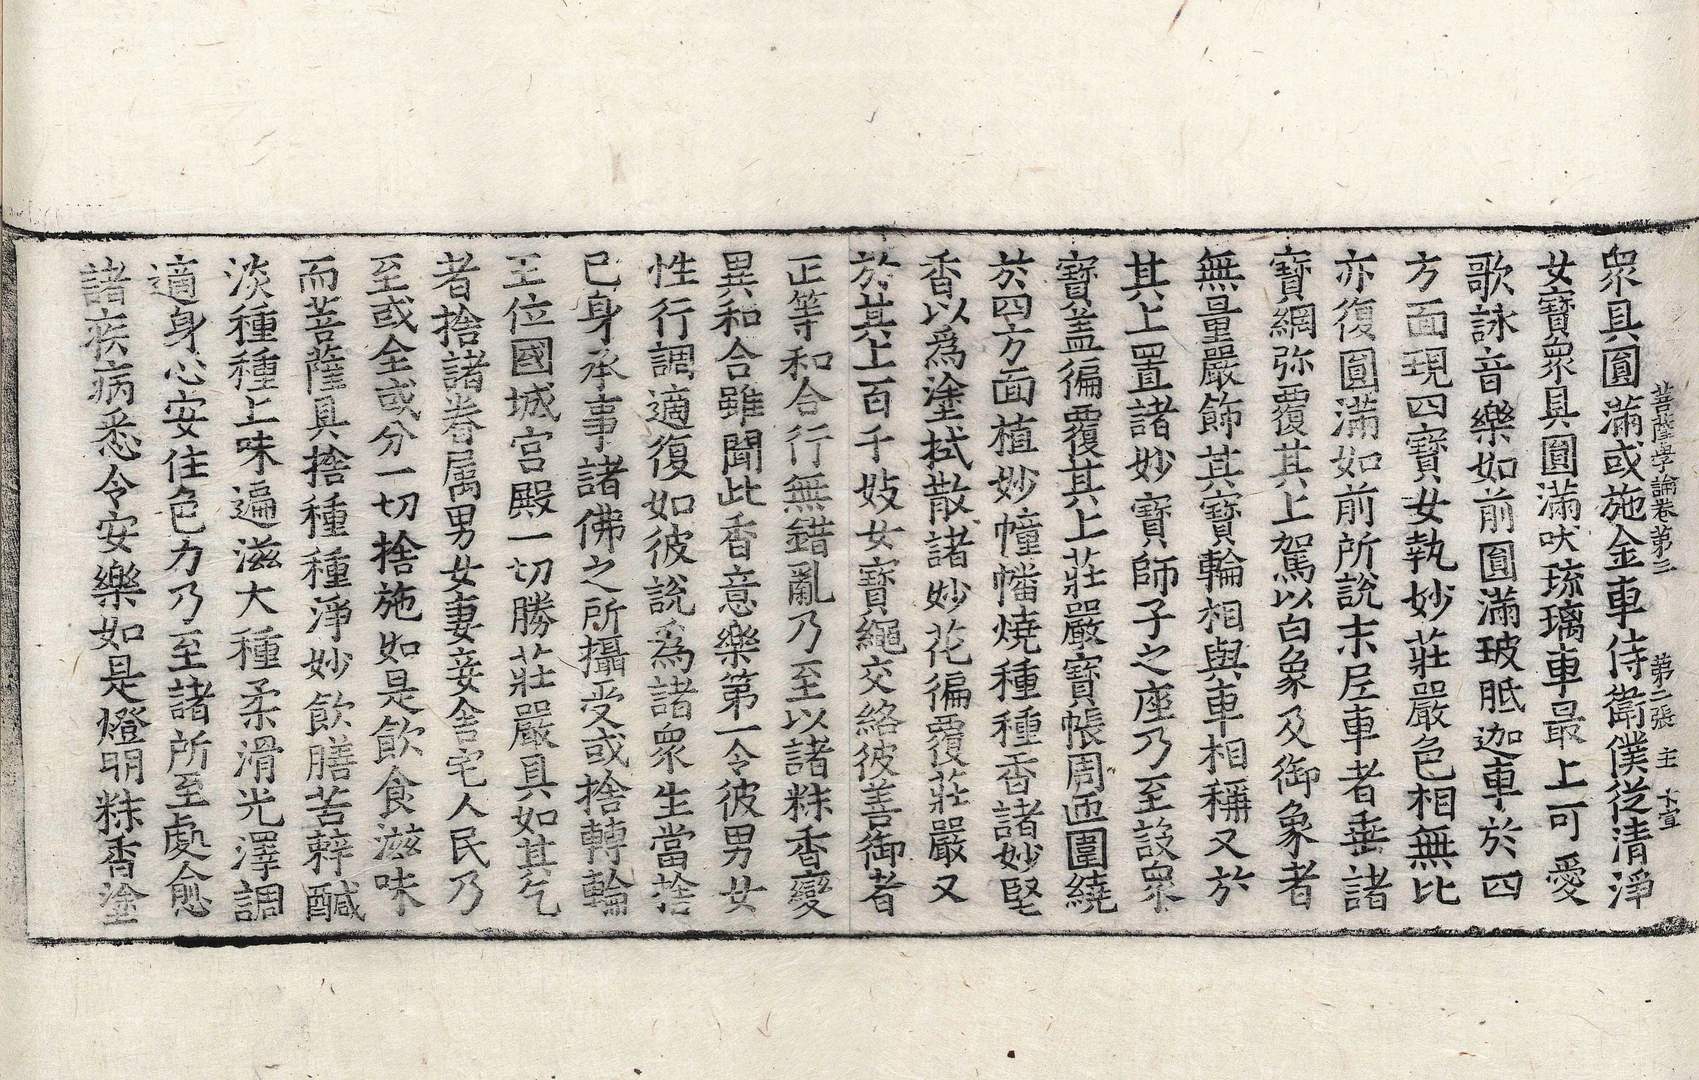 菩薩學論卷第三　第二張　主
衆具圓滿或施金車侍衛僕從清淨
女寶衆具圓滿吠琉璃車最上可愛
歌詠音樂如前圓滿玻胝迦車於四
方面現四寶女執妙莊嚴色相無比
亦復圓滿如前所說末尼車者垂諸
寶網弥覆其上駕以白象及御象者
無量嚴飾其寶輪相與車相稱又於
其上置諸妙寶師子之座乃至設衆
寶盖徧覆其上莊嚴寶帳周匝圍繞
於四方面植妙幢幡燒種種香諸妙堅
香以爲塗拭散諸妙花徧覆莊嚴又
於其上百千妓女寶繩交絡彼善御者
正等和合行無錯亂乃至以諸粖香變
異和合雖聞此香意樂第一令彼男女
性行調適復如彼說爲諸衆生當捨
己身承事諸佛之所攝受或捨轉輪
王位國城宮殿一切勝莊嚴具如其乞
者捨諸眷属男女妻妾舍宅人民乃
至或全或分一切捨施如是飲食滋味
而菩薩具捨種種淨妙飲膳苦辢醎
淡種種上味遍滋大種柔滑光澤調
適身心安住色力乃至諸所至處愈
諸疾病悉令安樂如是燈明粖香塗